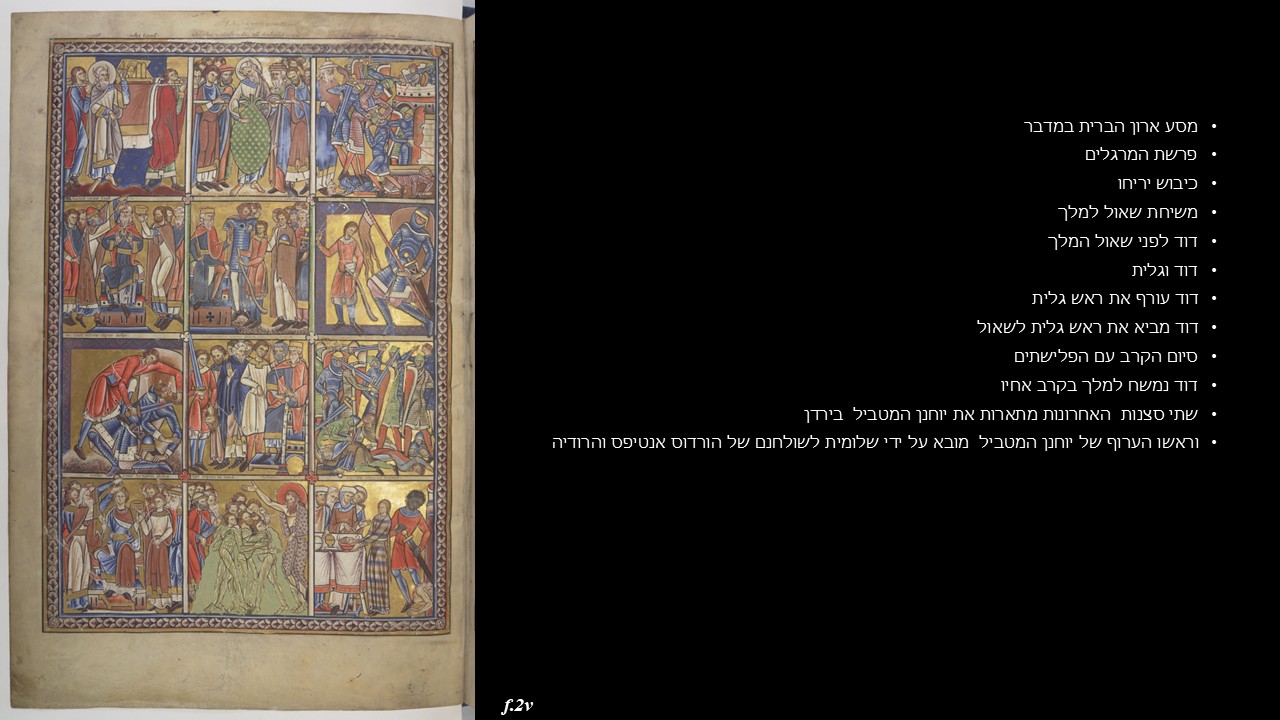 מסע ארון הברית במדבר
פרשת המרגלים
כיבוש יריחו
משיחת שאול למלך
דוד לפני שאול המלך
דוד וגלית
דוד עורף את ראש גלית
דוד מביא את ראש גלית לשאול
סיום הקרב עם הפלישתים
דוד נמשח למלך בקרב אחיו
שתי סצנות האחרונות מתארות את יוחנן המטביל בירדן
וראשו הערוף של יוחנן המטביל מובא על ידי שלומית לשולחנם של הורדוס אנטיפס והרודיה
f.2v